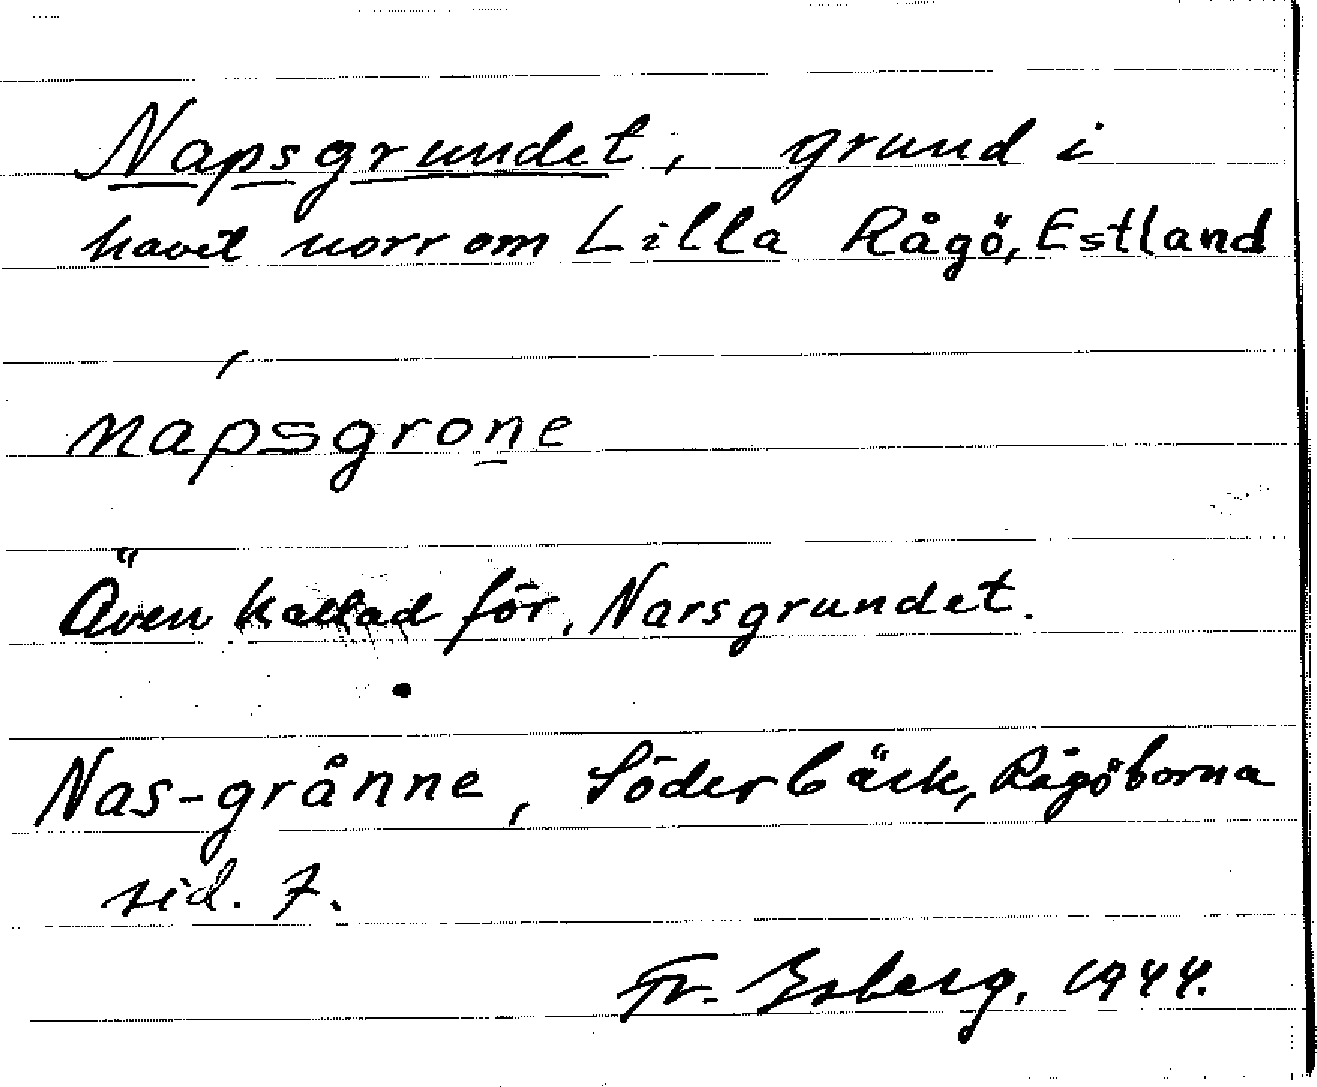 Napsgrundet, grund i
havet norr om Lilla Rågö, Estland
napsgrone
Även kallad för, Narsgrundet.
Nas-grånne, Söderbäck, Rågöborna
sid. 7.
Fr.
1944.